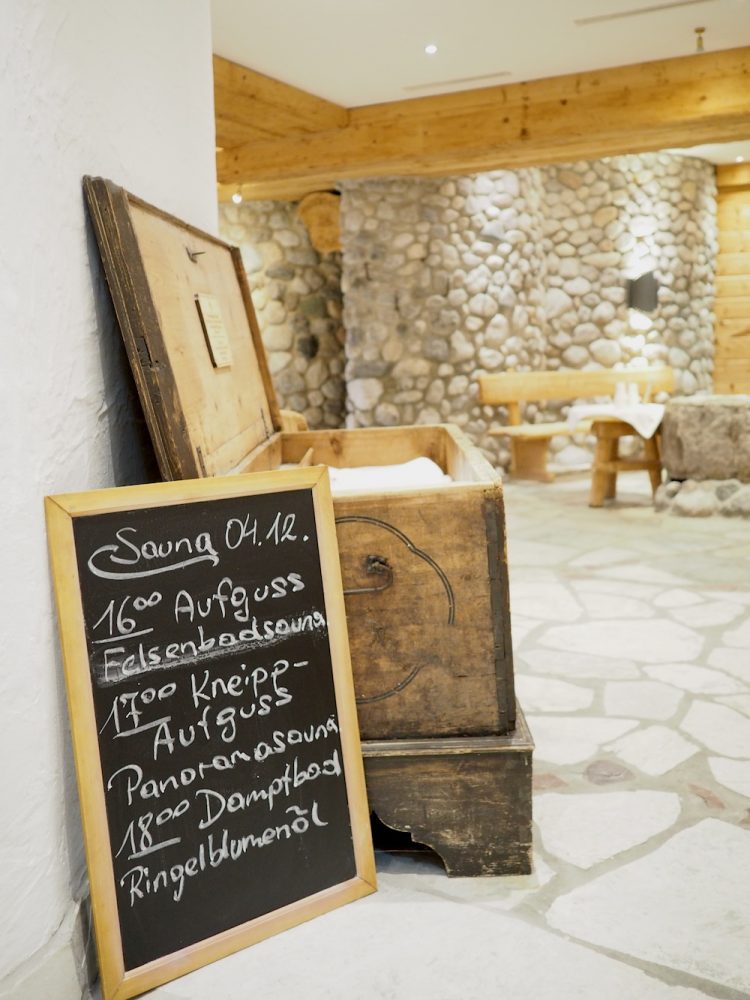 Sauna 04.12.
16⁰⁰ Aufguss
Felsenbadsauna
17⁰⁰ Kneipp-
Aufguss
Panoramasauna
18⁰⁰ Dampfbad
Ringelblumenöl